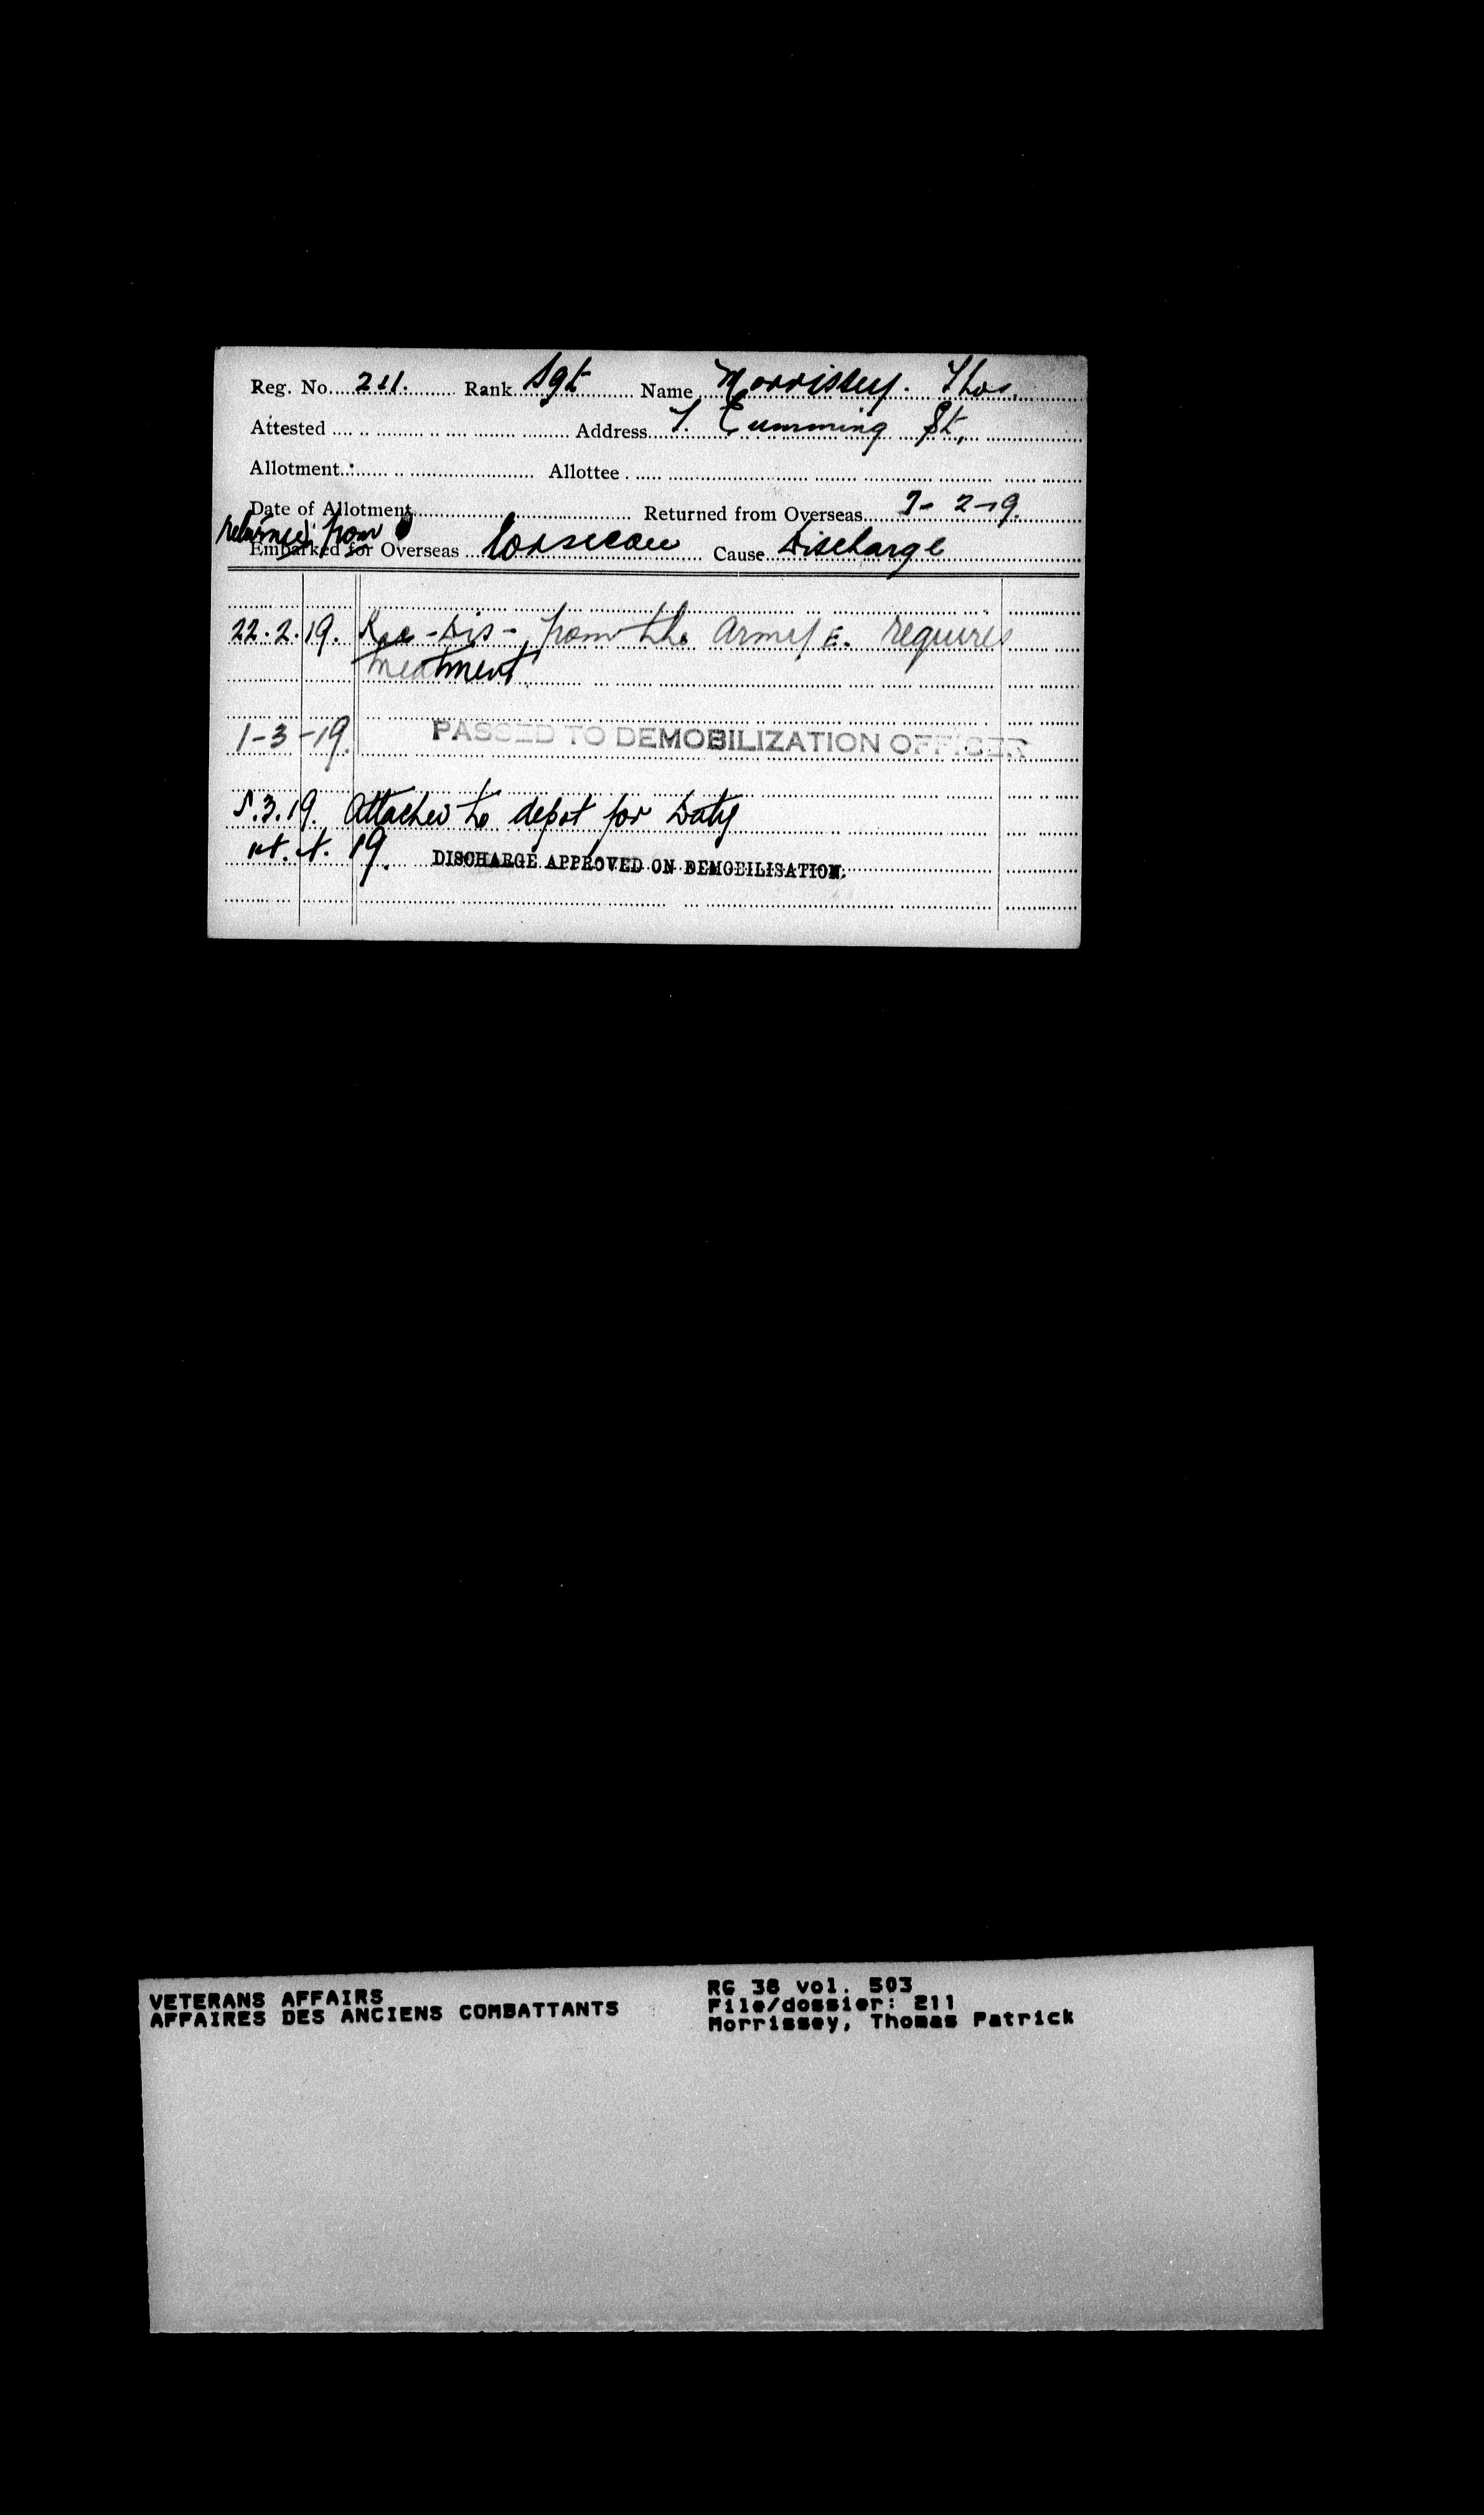 Reg. No. 211. Rank Sgt Name Morrissey. Thos.
Attested Address 7. Cumming St,
Allotment Allottee
Date of Allotment Returned from Overseas 7-2-19.
Returned from
Embarked for Overseas Corsican Cause Discharge
22.2.19. Rec - Dis - from the Army E. requires
treatment
1-3-19. PASSED TO DEMOBILIZATION OFFICER
5.3.19. Attached to depot for Duty
19. DISCHARGE APPROVED ON DEMOBILISATION.
VETERANS AFFAIRS
AFFAIRES DES ANCIENS COMBATTANTS
RG 38 vol. 503
File/dossier: 211
Morrissey, Thomas Patrick